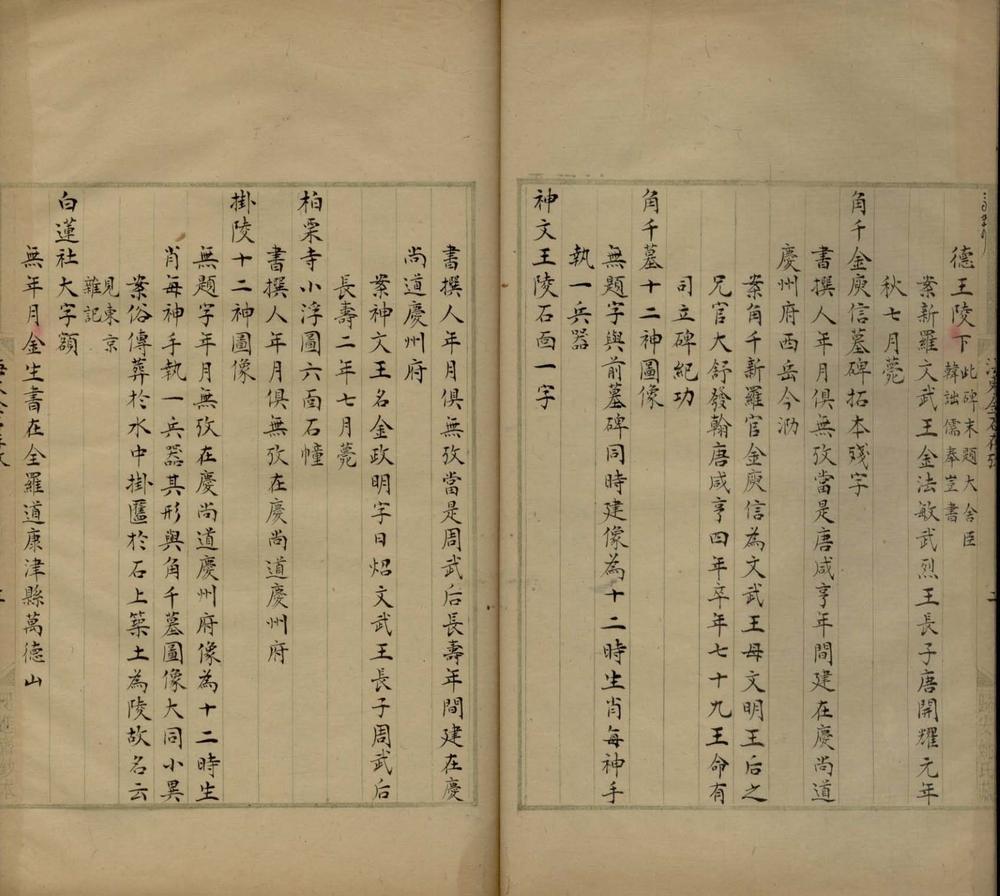 德王陵下此碑末題大舍臣
韓訥儒奉豈書
案新羅文武王金法敏武烈王長子唐開耀元年
秋七月薨
角干金庾信墓碑拓本殘字
書撰人年月俱無攷當是唐咸亨年間建在慶尚道
慶州府西岳今泐
案角干新羅官金庾信為文武王母文明王后之
兄官大舒發翰唐咸亨四年卒年七十九王命有
司立碑紀功
角干墓十二神圖像
無題字與前墓碑同時建像為十二時生肖每神手
執一兵器
神文王陵石面一字
書撰人年月俱無攷當是周武后長壽年間建在慶
尚道慶州府
案神文王名金政明字日炤文武王長子周武后
長壽二年七月薨
柏栗寺小浮圖六面石幢
書撰人年月俱無攷在慶尚道慶州府
掛陵十二神圖像
無題字年月無攷在慶尚道慶州府像為十二時生
肖每神手執一兵器其形與角干墓圖像大同小異
案俗傳葬於水中掛匶於石上築土為陵故名云
見東京
雜記
白蓮社大字額
無年月金生書在全羅道康津縣萬德山